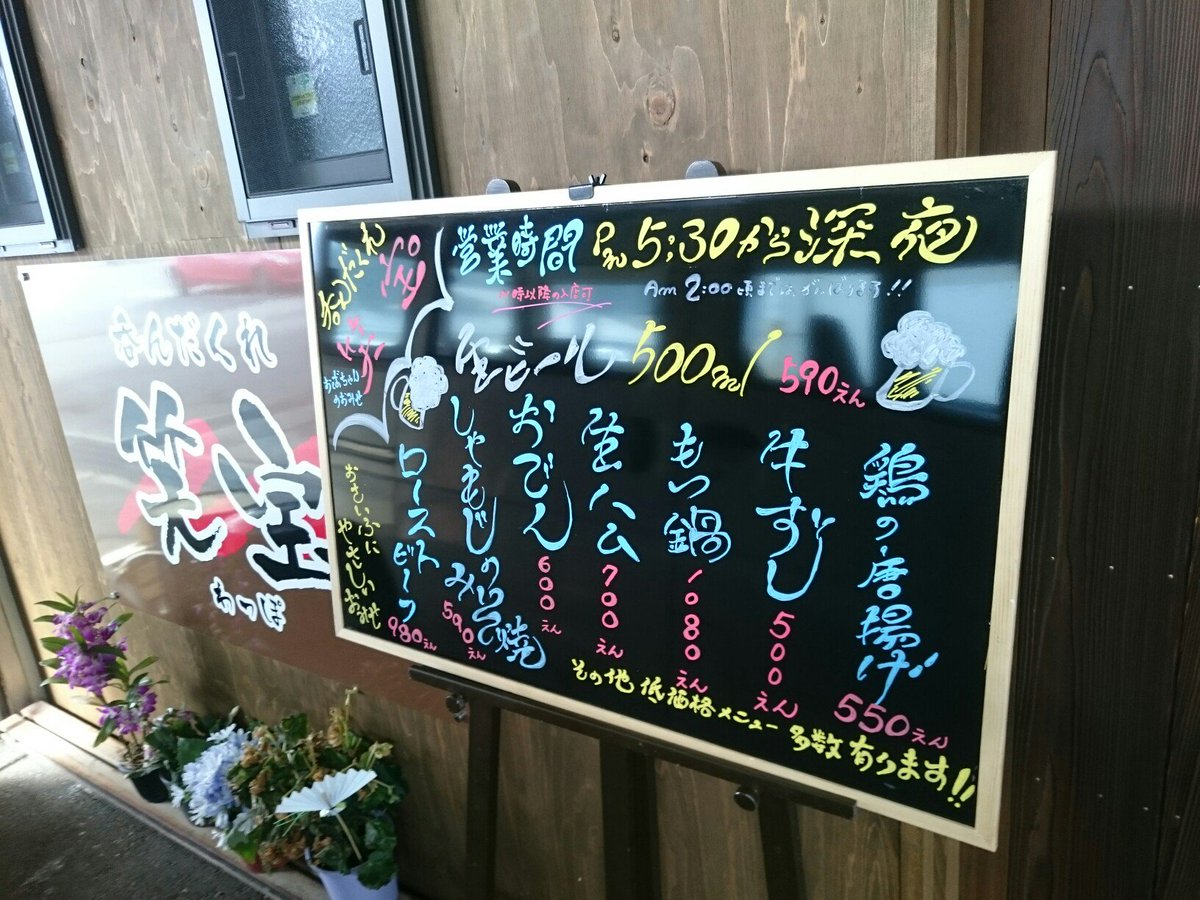 営業時間 Pm 5:30から深夜
Am 2:00頃まではがんばります!!
時以降の入店可
呑んだくれ
笑宝
わっぽ
おばあちゃん
のおみせ
おさいふに
やさしいお店
生ビール 500ml 590えん
鶏の唐揚げ 550えん
牛すじ 500えん
もつ鍋 1080えん
生ハム 700えん
おでん 600えん
しゃもじのみそ焼 590えん
ローストビーフ 980えん
その他 低価格メニュー多数有ります!!
呑んだくれ
笑宝
わっぽ